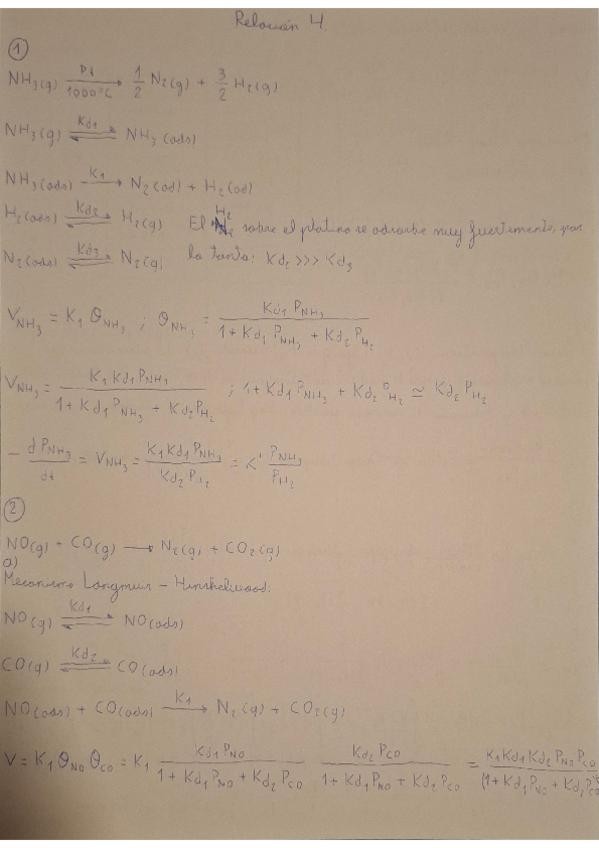 Relación 4
①
NH₃(g) —Pt/1000ºC→ 1/2 N₂(g) + 3/2 H₂(g)
NH₃(g) ⇌ (Kd₁) NH₃(ads)
NH₃(ads) —K₁→ N₂(ad) + H₂(ad)
H₂(ads) ⇌ (Kd₂) H₂(g) El H₂ sobre el platino se adsorbe muy fuertemente, por
N₂(ads) ⇌ (Kd₃) N₂(g) lo tanto: Kd₂ >>> Kd₃
V_NH₃ = K₁ θ_NH₃ ; θ_NH₃ = Kd₁ P_NH₃ / (1 + Kd₁ P_NH₃ + Kd₂ P_H₂)
V_NH₃ = K₁ Kd₁ P_NH₃ / (1 + Kd₁ P_NH₃ + Kd₂ P_H₂) ; 1 + Kd₁ P_NH₃ + Kd₂ P_H₂ ≃ Kd₂ P_H₂
− dP_NH₃/dt = V_NH₃ = K₁ Kd₁ P_NH₃ / (Kd₂ P_H₂) = K' P_NH₃ / P_H₂
②
NO(g) + CO(g) ⟶ N₂(g) + CO₂(g)
a)
Mecanismo Langmuir – Hinshelwood:
NO(g) ⇌ (Kd₁) NO(ads)
CO(g) ⇌ (Kd₂) CO(ads)
NO(ads) + CO(ads) —K₁→ N₂(g) + CO₂(g)
V = K₁ θ_NO θ_CO = K₁ Kd₁ P_NO / (1 + Kd₁ P_NO + Kd₂ P_CO) Kd₂ P_CO / (1 + Kd₁ P_NO + Kd₂ P_CO) = K₁ Kd₁ Kd₂ P_NO P_CO / (1 + Kd₁ P_NO + Kd₂ P_CO)²